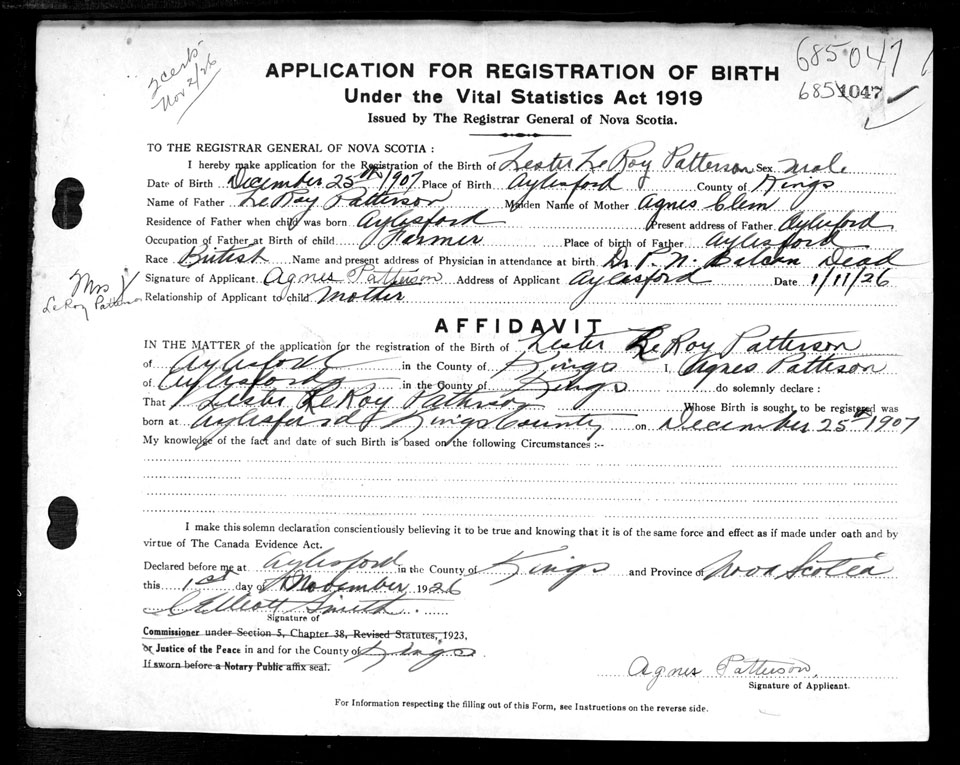 2 certs
Nov 2/26
685047
6851047
APPLICATION FOR REGISTRATION OF BIRTH
Under the Vital Statistics Act 1919
Issued by The Registrar General of Nova Scotia.
TO THE REGISTRAR GENERAL OF NOVA SCOTIA :
I hereby make application for the Registration of the Birth of Lester LeRoy Patterson Sex Male
Date of Birth December 25th 1907 Place of Birth Aylesford County of Kings
Name of Father LeRoy Patterson Maiden Name of Mother Agnes Clem
Residence of Father when child was born Aylesford Present address of Father Aylesford
Occupation of Father at Birth of child Farmer Place of birth of Father Aylesford
Race British Name and present address of Physician in attendance at birth Dr P. N. Balcom Dead
Signature of Applicant Agnes Patterson Address of Applicant Aylesford Date 1/11/26
Mrs
LeRoy Patterson
Relationship of Applicant to child Mother
AFFIDAVIT
IN THE MATTER of the application for the registration of the Birth of Lester LeRoy Patterson
of Aylesford in the County of Kings I, Agnes Pattison
of Aylesford in the County of Kings do solemnly declare :
That Lester LeRoy Patterson Whose Birth is sought to be registered was
born at Aylesford Kings County on December 25th 1907
My knowledge of the fact and date of such Birth is based on the following Circumstances :--
I make this solemn declaration conscientiously believing it to be true and knowing that it is of the same force and effect as if made under oath and by
virtue of The Canada Evidence Act.
Declared before me at Aylesford in the County of Kings and Province of Nova Scotia
this 1st day of November 1926
Elliott Smith
Signature of
Commissioner under Section 5, Chapter 38, Revised Statutes, 1923,
or Justice of the Peace in and for the County of Kings
If sworn before a Notary Public affix seal.
Agnes Patterson
Signature of Applicant.
For Information respecting the filling out of this Form, see Instructions on the reverse side.